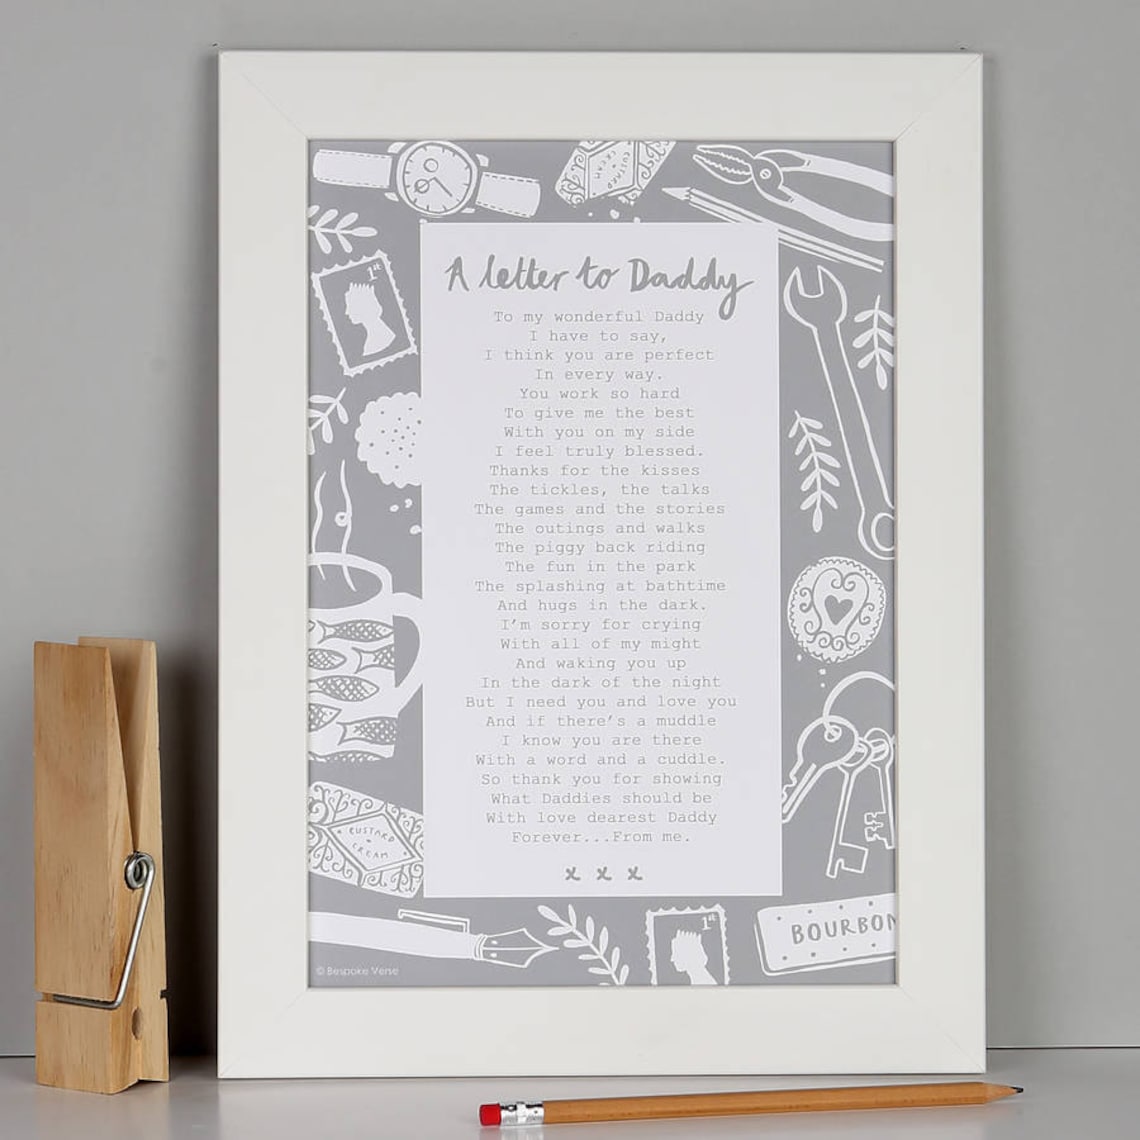 CUSTARD
CREAM
1st
A letter to Daddy
To my wonderful Daddy
I have to say,
I think you are perfect
In every way.
You work so hard
To give me the best
With you on my side
I feel truly blessed.
Thanks for the kisses
The tickles, the talks
The games and the stories
The outings and walks
The piggy back riding
The fun in the park
The splashing at bathtime
And hugs in the dark.
I'm sorry for crying
With all of my might
And waking you up
In the dark of the night
But I need you and love you
And if there's a muddle
I know you are there
With a word and a cuddle.
So thank you for showing
What Daddies should be
With love dearest Daddy
Forever...From me.
x x x
CUSTARD
CREAM
1st
BOURBON
© Bespoke Verse